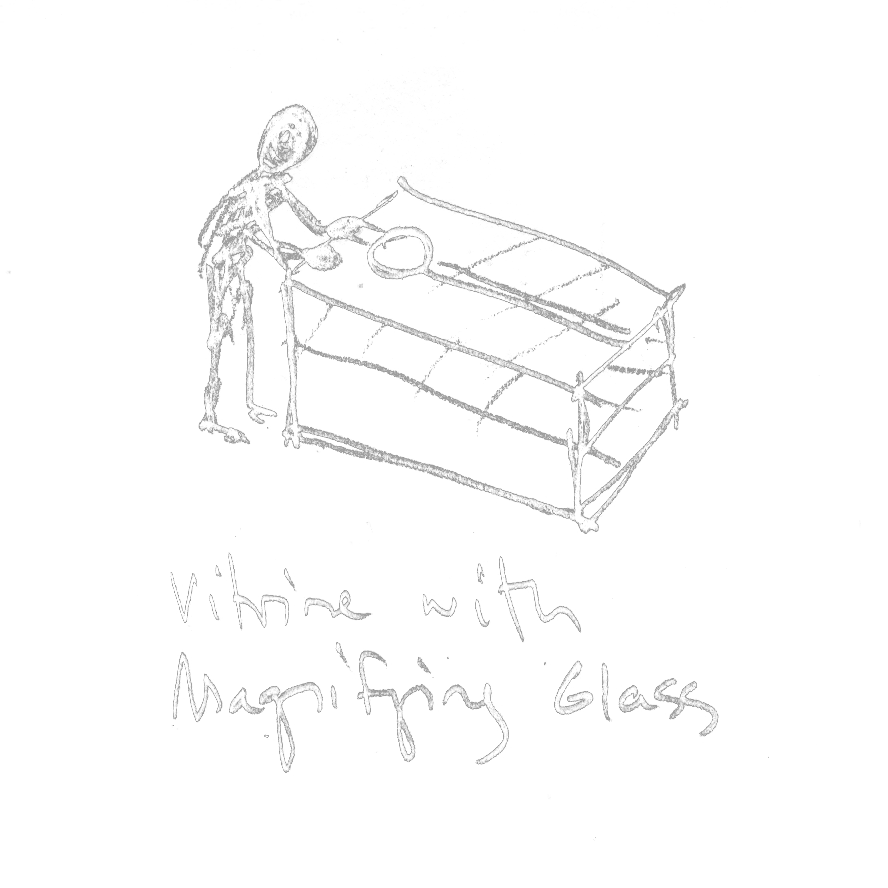 Vitrine with
Magnifying Glass